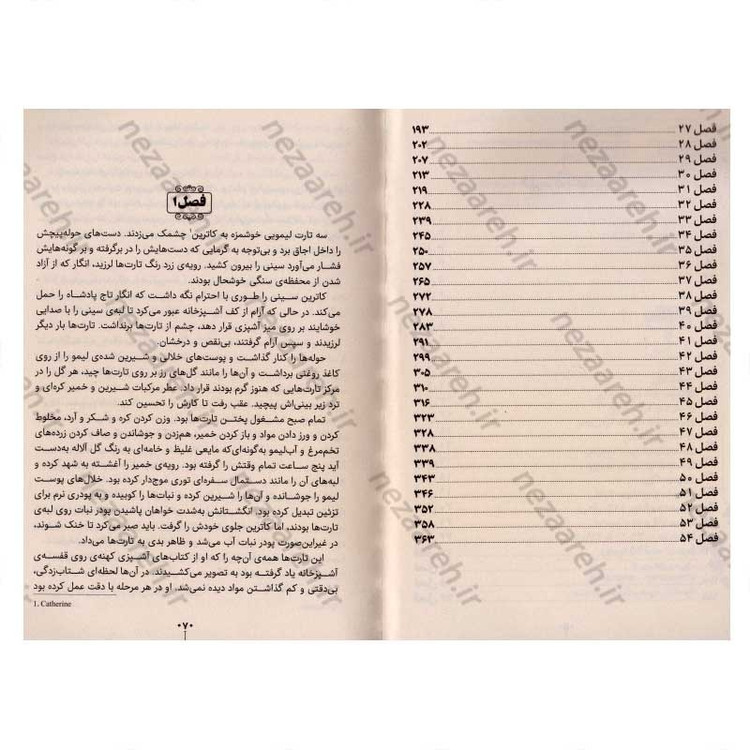 فصل ۲۷ ۱۹۳
فصل ۲۸ ۲۰۲
فصل ۲۹ ۲۰۷
فصل ۳۰ ۲۱۳
فصل ۳۱ ۲۱۹
فصل ۳۲ ۲۲۸
فصل ۳۳ ۲۳۹
فصل ۳۴ ۲۴۵
فصل ۳۵ ۲۵۰
فصل ۳۶ ۲۵۷
فصل ۳۷ ۲۶۵
فصل ۳۸ ۲۷۲
فصل ۳۹ ۲۷۸
فصل ۴۰ ۲۸۳
فصل ۴۱ ۲۹۱
فصل ۴۲ ۲۹۹
فصل ۴۳ ۳۰۵
فصل ۴۴ ۳۱۰
فصل ۴۵ ۳۱۶
فصل ۴۶ ۳۲۳
فصل ۴۷ ۳۲۸
فصل ۴۸ ۳۳۸
فصل ۴۹ ۳۳۹
فصل ۵۰ ۳۴۳
فصل ۵۱ ۳۴۶
فصل ۵۲ ۳۵۲
فصل ۵۳ ۳۵۸
فصل ۵۴ ۳۶۳
فصل ۱
سه تارت لیمویی خوشمزه به کاترین۱ چشمک می‌زدند. دست‌های حوله‌پیچش
را داخل اجاق برد و بی‌توجه به گرمایی که دست‌هایش را در برگرفته و بر گونه‌هایش
فشار می‌آورد سینی را بیرون کشید. رویه‌ی زرد رنگ تارت‌ها لرزید، انگار که از آزاد
شدن از محفظه‌ی سنگی خوشحال بودند.
کاترین سینی را طوری با احترام نگه داشت که انگار تاج پادشاه را حمل
می‌کند. در حالی که آرام از کف آشپزخانه عبور می‌کرد تا لبه‌ی سینی را با صدایی
خوشایند بر روی میز آشپزی قرار دهد، چشم از تارت‌ها برنداشت. تارت‌ها بار دیگر
لرزیدند و سپس آرام گرفتند، بی‌نقص و درخشان.
حوله‌ها را کنار گذاشت و پوست‌های خلالی و شیرین شده‌ی لیمو را از روی
کاغذ روغنی برداشت و آن‌ها را مانند گل‌های رز بر روی تارت‌ها چید، هر گل را در
مرکز تارت‌هایی که هنوز گرم بودند قرار داد. عطر مرکبات شیرین و خمیر کره‌ای و
ترد زیر بینی‌اش پیچید. عقب رفت تا کارش را تحسین کند.
تمام صبح مشغول پختن تارت‌ها بود. وزن کردن کره و شکر و آرد، مخلوط
کردن و ورز دادن مواد و باز کردن خمیر، هم‌زدن و جوشاندن و صاف کردن زرده‌های
تخم‌مرغ و آب‌لیمو به‌گونه‌ای‌که مایعی غلیظ و خامه‌ای به رنگ گل آلاله به‌دست
آید پنج ساعت تمام وقتش را گرفته بود. رویه‌ی خمیر را آغشته به شهد کرده و
لبه‌های آن را مانند دستمال سفره‌ای توری موج‌دار کرده بود. خلال‌های پوست
لیمو را جوشانده و آن‌ها را شیرین کرده و نبات‌ها را کوبیده و به پودری نرم برای
تزئین تبدیل کرده بود. انگشتانش به‌شدت خواهان پاشیدن پودر نبات روی لبه‌ی
تارت‌ها بودند، اما کاترین جلوی خودش را گرفت. باید صبر می‌کرد تا خنک شوند،
در غیراین‌صورت پودر نبات آب می‌شد و ظاهر بدی به تارت‌ها می‌داد.
این تارت‌ها همه‌ی آن‌چه را که او از کتاب‌های آشپزی کهنه‌ی روی قفسه‌ی
آشپزخانه یاد گرفته بود به تصویر می‌کشیدند. در آن‌ها لحظه‌ای شتاب‌زدگی،
بی‌دقتی و کم گذاشتن مواد دیده نمی‌شد. او در هر مرحله با دقت عمل کرده بود
1. Catherine
۰۷۰
nezaareh.ir
nezaareh.ir
nezaareh.ir
nezaareh.ir
nezaareh.ir
nezaareh.ir
nezaareh.ir
nezaareh.ir
nezaareh.ir